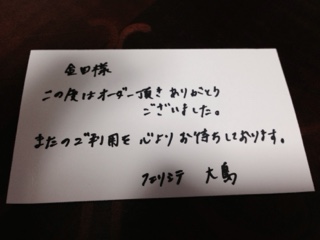 金田様
この度はオーダー頂きありがとう
ございました。
またのご利用を心よりお待ちしております。
フェリシテ 大島